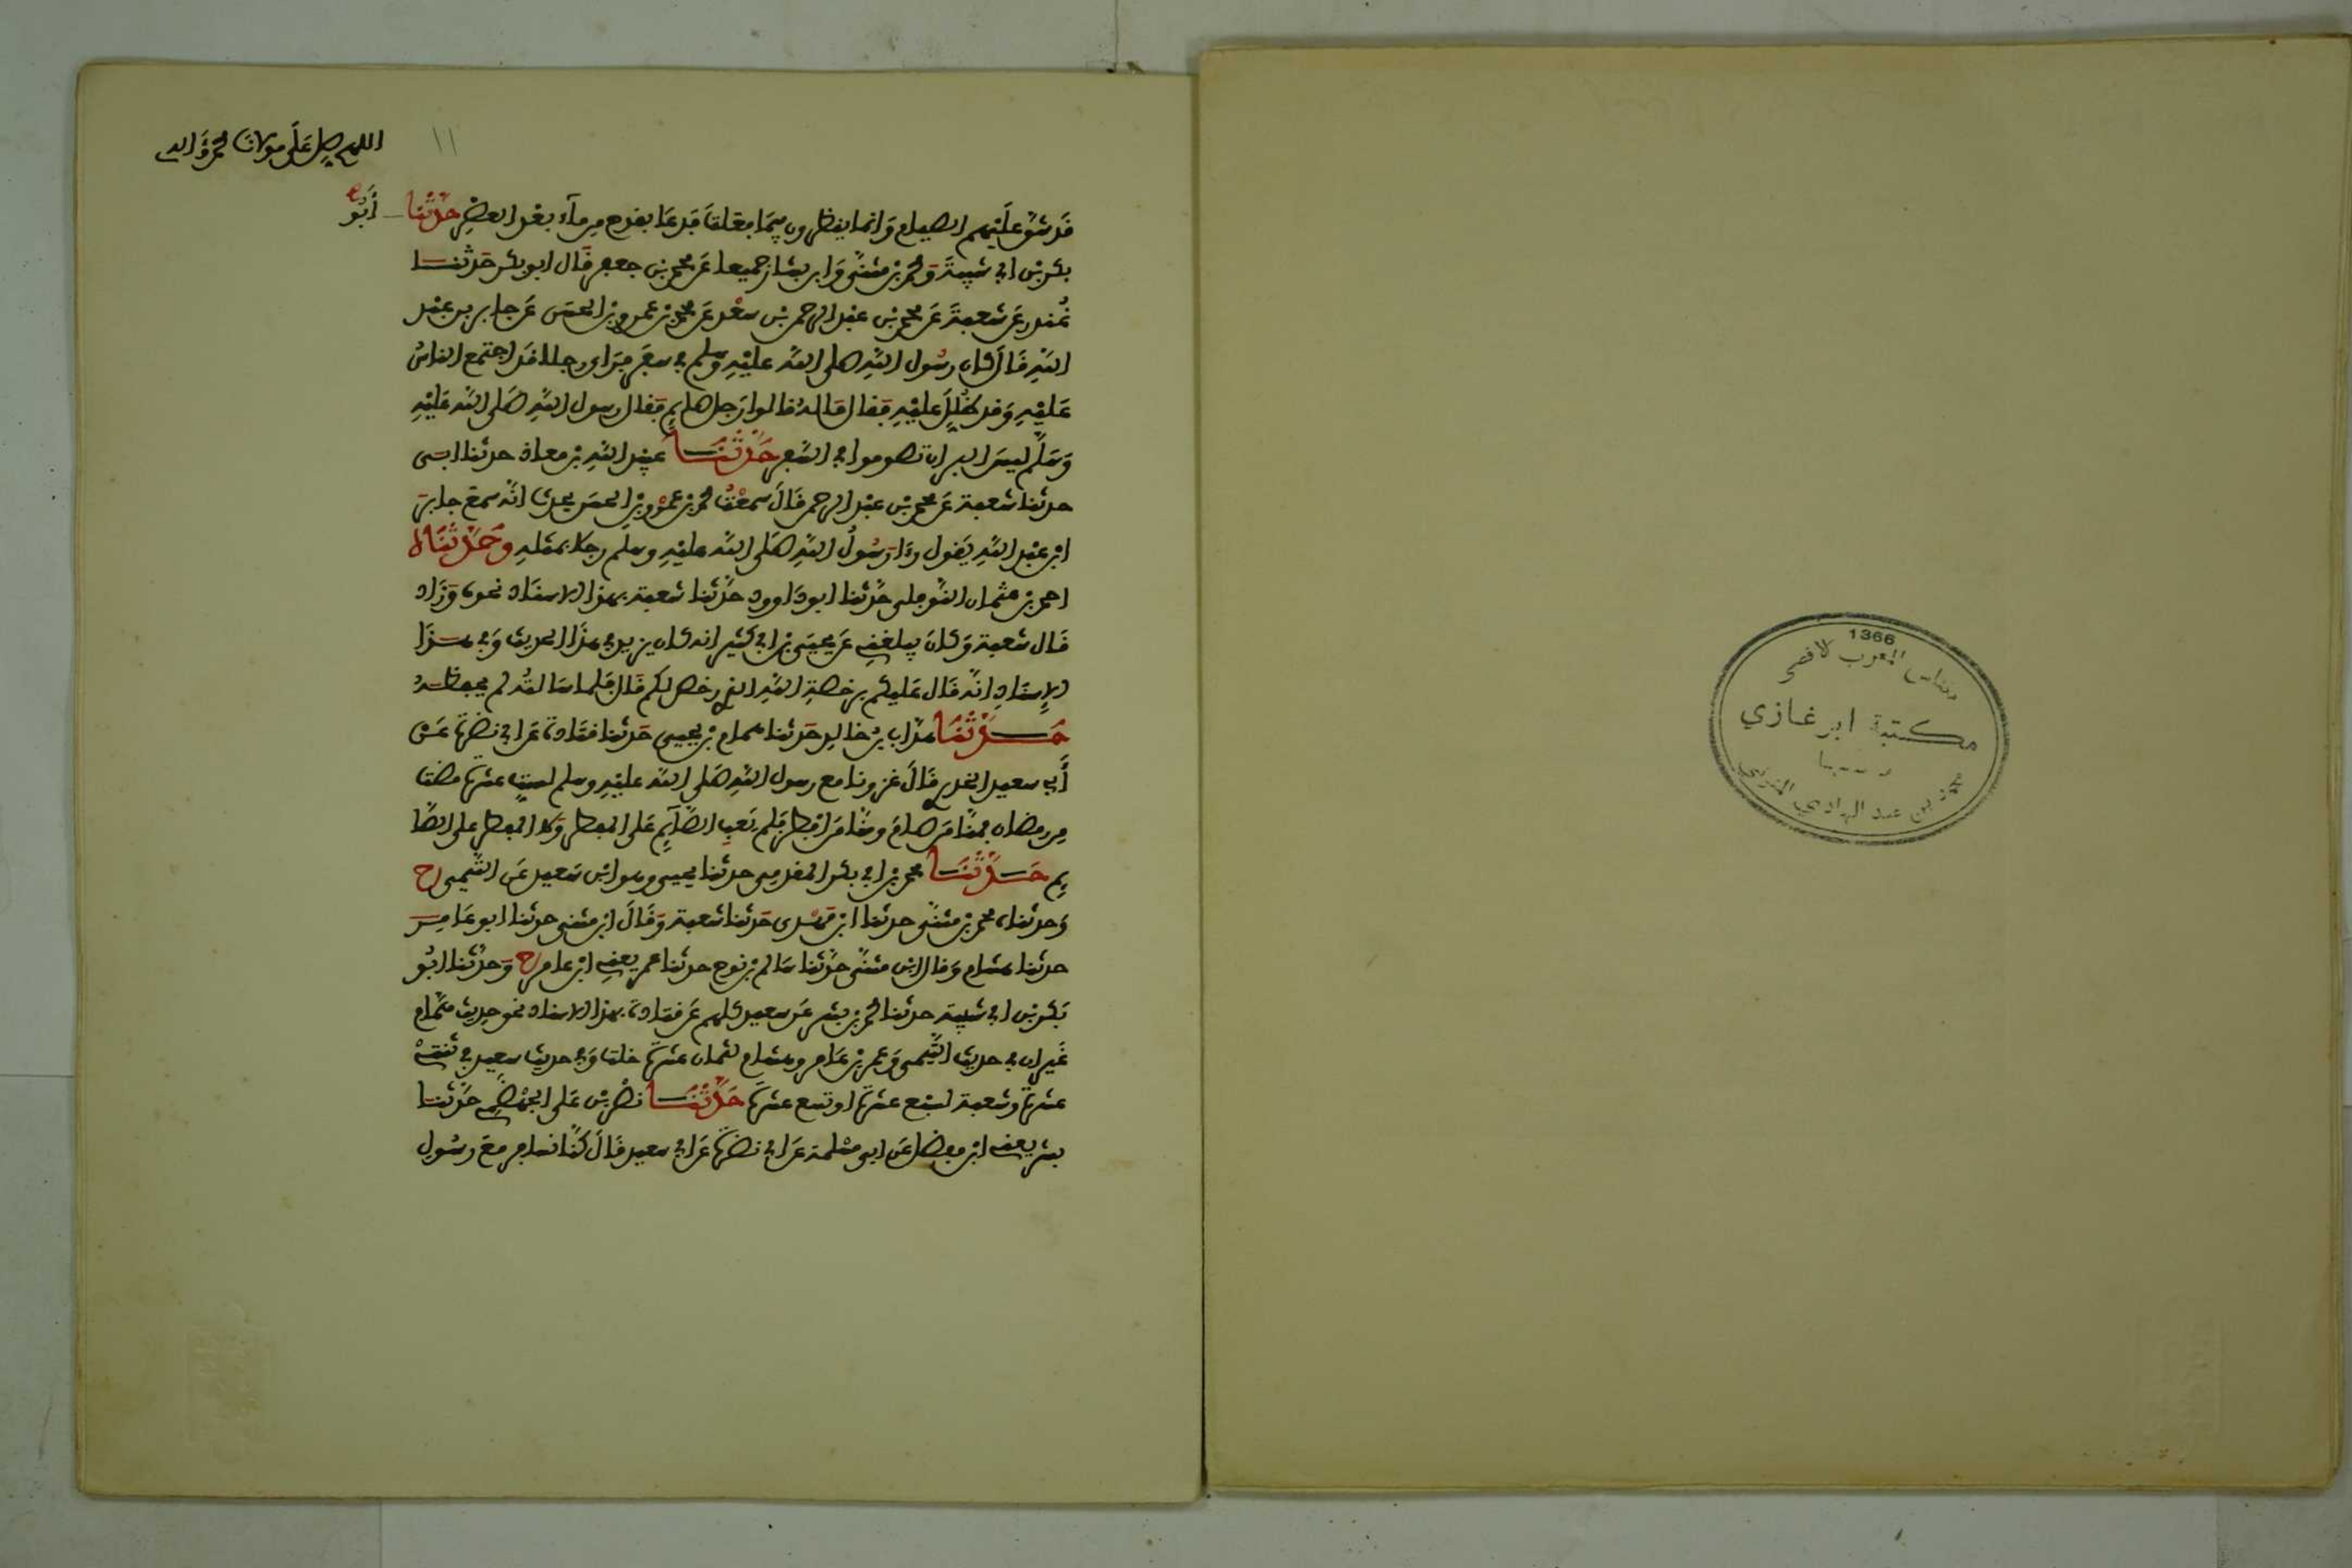 اللهم صل على مولانا محمد وءاله
١١
قد شق عليهم الصيام وانما ينظرون فيما فعلت فدعا بقدح من ماء بعد العصر حدثنا أبو
بكر بن ابي شيبة ومحمد بن مثنى وابن بشار جميعا عن محمد بن جعفر قال ابو بكر حدثنا
غندر عن شعبة عن محمد بن عبد الرحمن بن سعد عن محمد بن عمرو بن الحسن عن جابر بن عبد
الله قال كان رسول الله صلى الله عليه وسلم في سفر فراى رجلا قد اجتمع الناس
عليه وقد ظلل عليه فقال ماله قالوا رجل صايم فقال رسول الله صلى الله عليه
وسلم ليس البر ان تصوموا في السفر حدثنا عبيد الله بن معاذ حدثنا ابي
حدثنا شعبة عن محمد بن عبد الرحمن قال سمعت محمد بن عمرو بن الحسن يحدث انه سمع جابر
ابن عبد الله يقول رءا رسول الله صلى الله عليه وسلم رجلا بمثله وحدثناه
احمد بن عثمان النوفلي حدثنا ابو داوود حدثنا شعبة بهذا الاسناد نحوه وزاد
قال شعبة وكان يبلغني عن يحيى بن ابي كثير انه كان يزيد في هذا الحديث وفي هذا
الإسناد انه قال عليكم برخصة الله الذي رخص لكم قال فلما سالته لم يحفظه
حدثنا هداب بن خالد حدثنا همام بن يحيى حدثنا قتادة عن ابي نضرة عن
أبي سعيد الخدري قال غزونا مع رسول الله صلى الله عليه وسلم لست عشرة مضت
من رمضان فمنا من صام ومنا من افطر فلم يعب الصايم على المفطر ولا المفطر على الصا
يم حدثنا محمد بن ابي بكر المقدمي حدثنا يحيى وهو ابن سعيد عن التيمي ح
وحدثناه محمد بن مثنى حدثنا ابن مهدي حدثنا شعبة وقال ابن مثنى حدثنا ابو عامر
حدثنا هشام وقال ابن مثنى حدثنا سالم بن نوح حدثنا عمر يعني ابن عامر ح وحدثنا ابو
بكر بن ابي شيبة حدثنا محمد بن بشر عن سعيد كلهم عن قتادة بهذا الاسناد نحو حديث همام
غير ان في حديث التيمي وعمر بن عامر وهشام لثمان عشرة خلت وفي حديث سعيد في ثنتي
عشرة وشعبة لسبع عشرة او تسع عشرة حدثنا نصر بن علي الجهضمي حدثنا
بشر يعني ابن مفضل عن ابي مسلمة عن ابي نضرة عن ابي سعيد قال كنا نسافر مع رسول
1366
بفاس المغرب الاقصى
مكتبة ابن غازي
محمد بن عبد الهادي المنوني